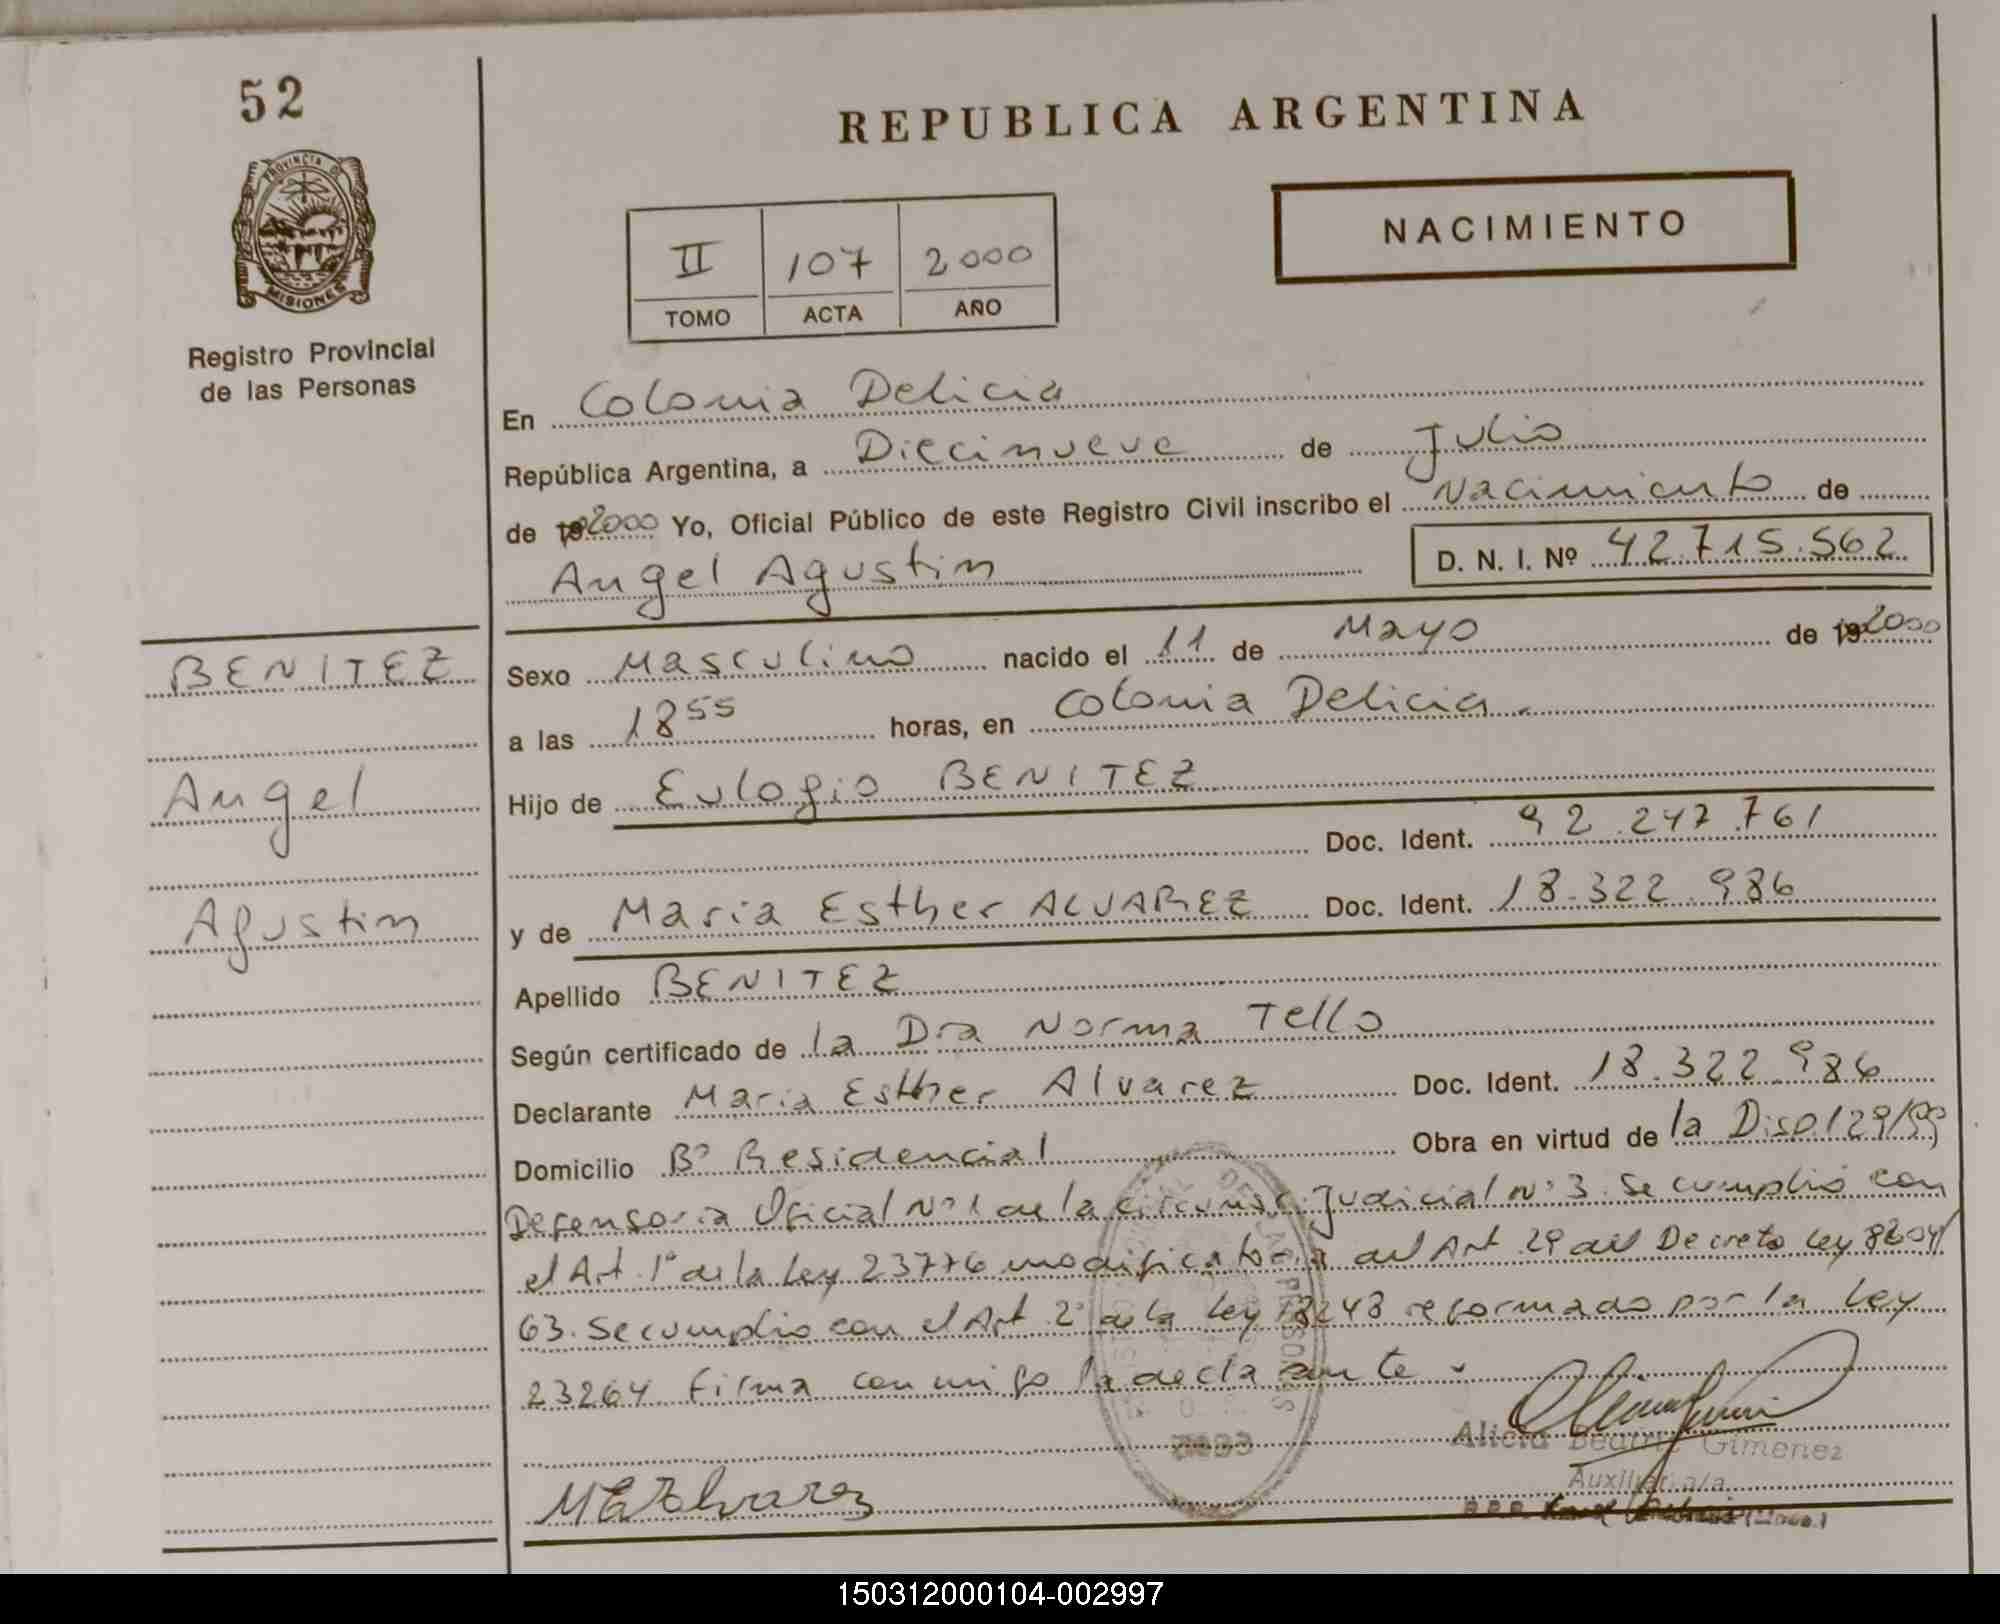 52
REPUBLICA ARGENTINA
PROVINCIA DE
MISIONES
Registro Provincial
de las Personas
NACIMIENTO
II 107 2000
TOMO ACTA AÑO
En Colonia Delicia
República Argentina, a Diecinueve de Julio
de 192000 Yo, Oficial Público de este Registro Civil inscribo el Nacimiento de
Angel Agustin D. N. I. Nº 42.715.562
BENITEZ
Angel
Agustin
Sexo Masculino nacido el 11 de Mayo de 192000
a las 18 55 horas, en Colonia Delicia.
Hijo de Eulogio BENITEZ
Doc. Ident. 92.247.761
y de Maria Esther ALVAREZ Doc. Ident. 18.322.986
Apellido BENITEZ
Según certificado de la Dra Norma Tello
Declarante Maria Esther Alvarez Doc. Ident. 18.322.986
Domicilio Bº Residencial Obra en virtud de la Disp. 129/99
Defensoria Oficial Nº 1 de la circunsc. Judicial Nº 3. Se cumplio con
el Art. 1º de la Ley 23776 modificatoria del Art 29 del Decreto Ley 8204/
63. Se cumplio con el Art. 2º de la Ley 18248 reformado por la Ley
23264. Firma conmigo la declarante.
M E Alvarez
Alicia Beatriz Gimenez
Auxiliar a/a
150312000104-002997